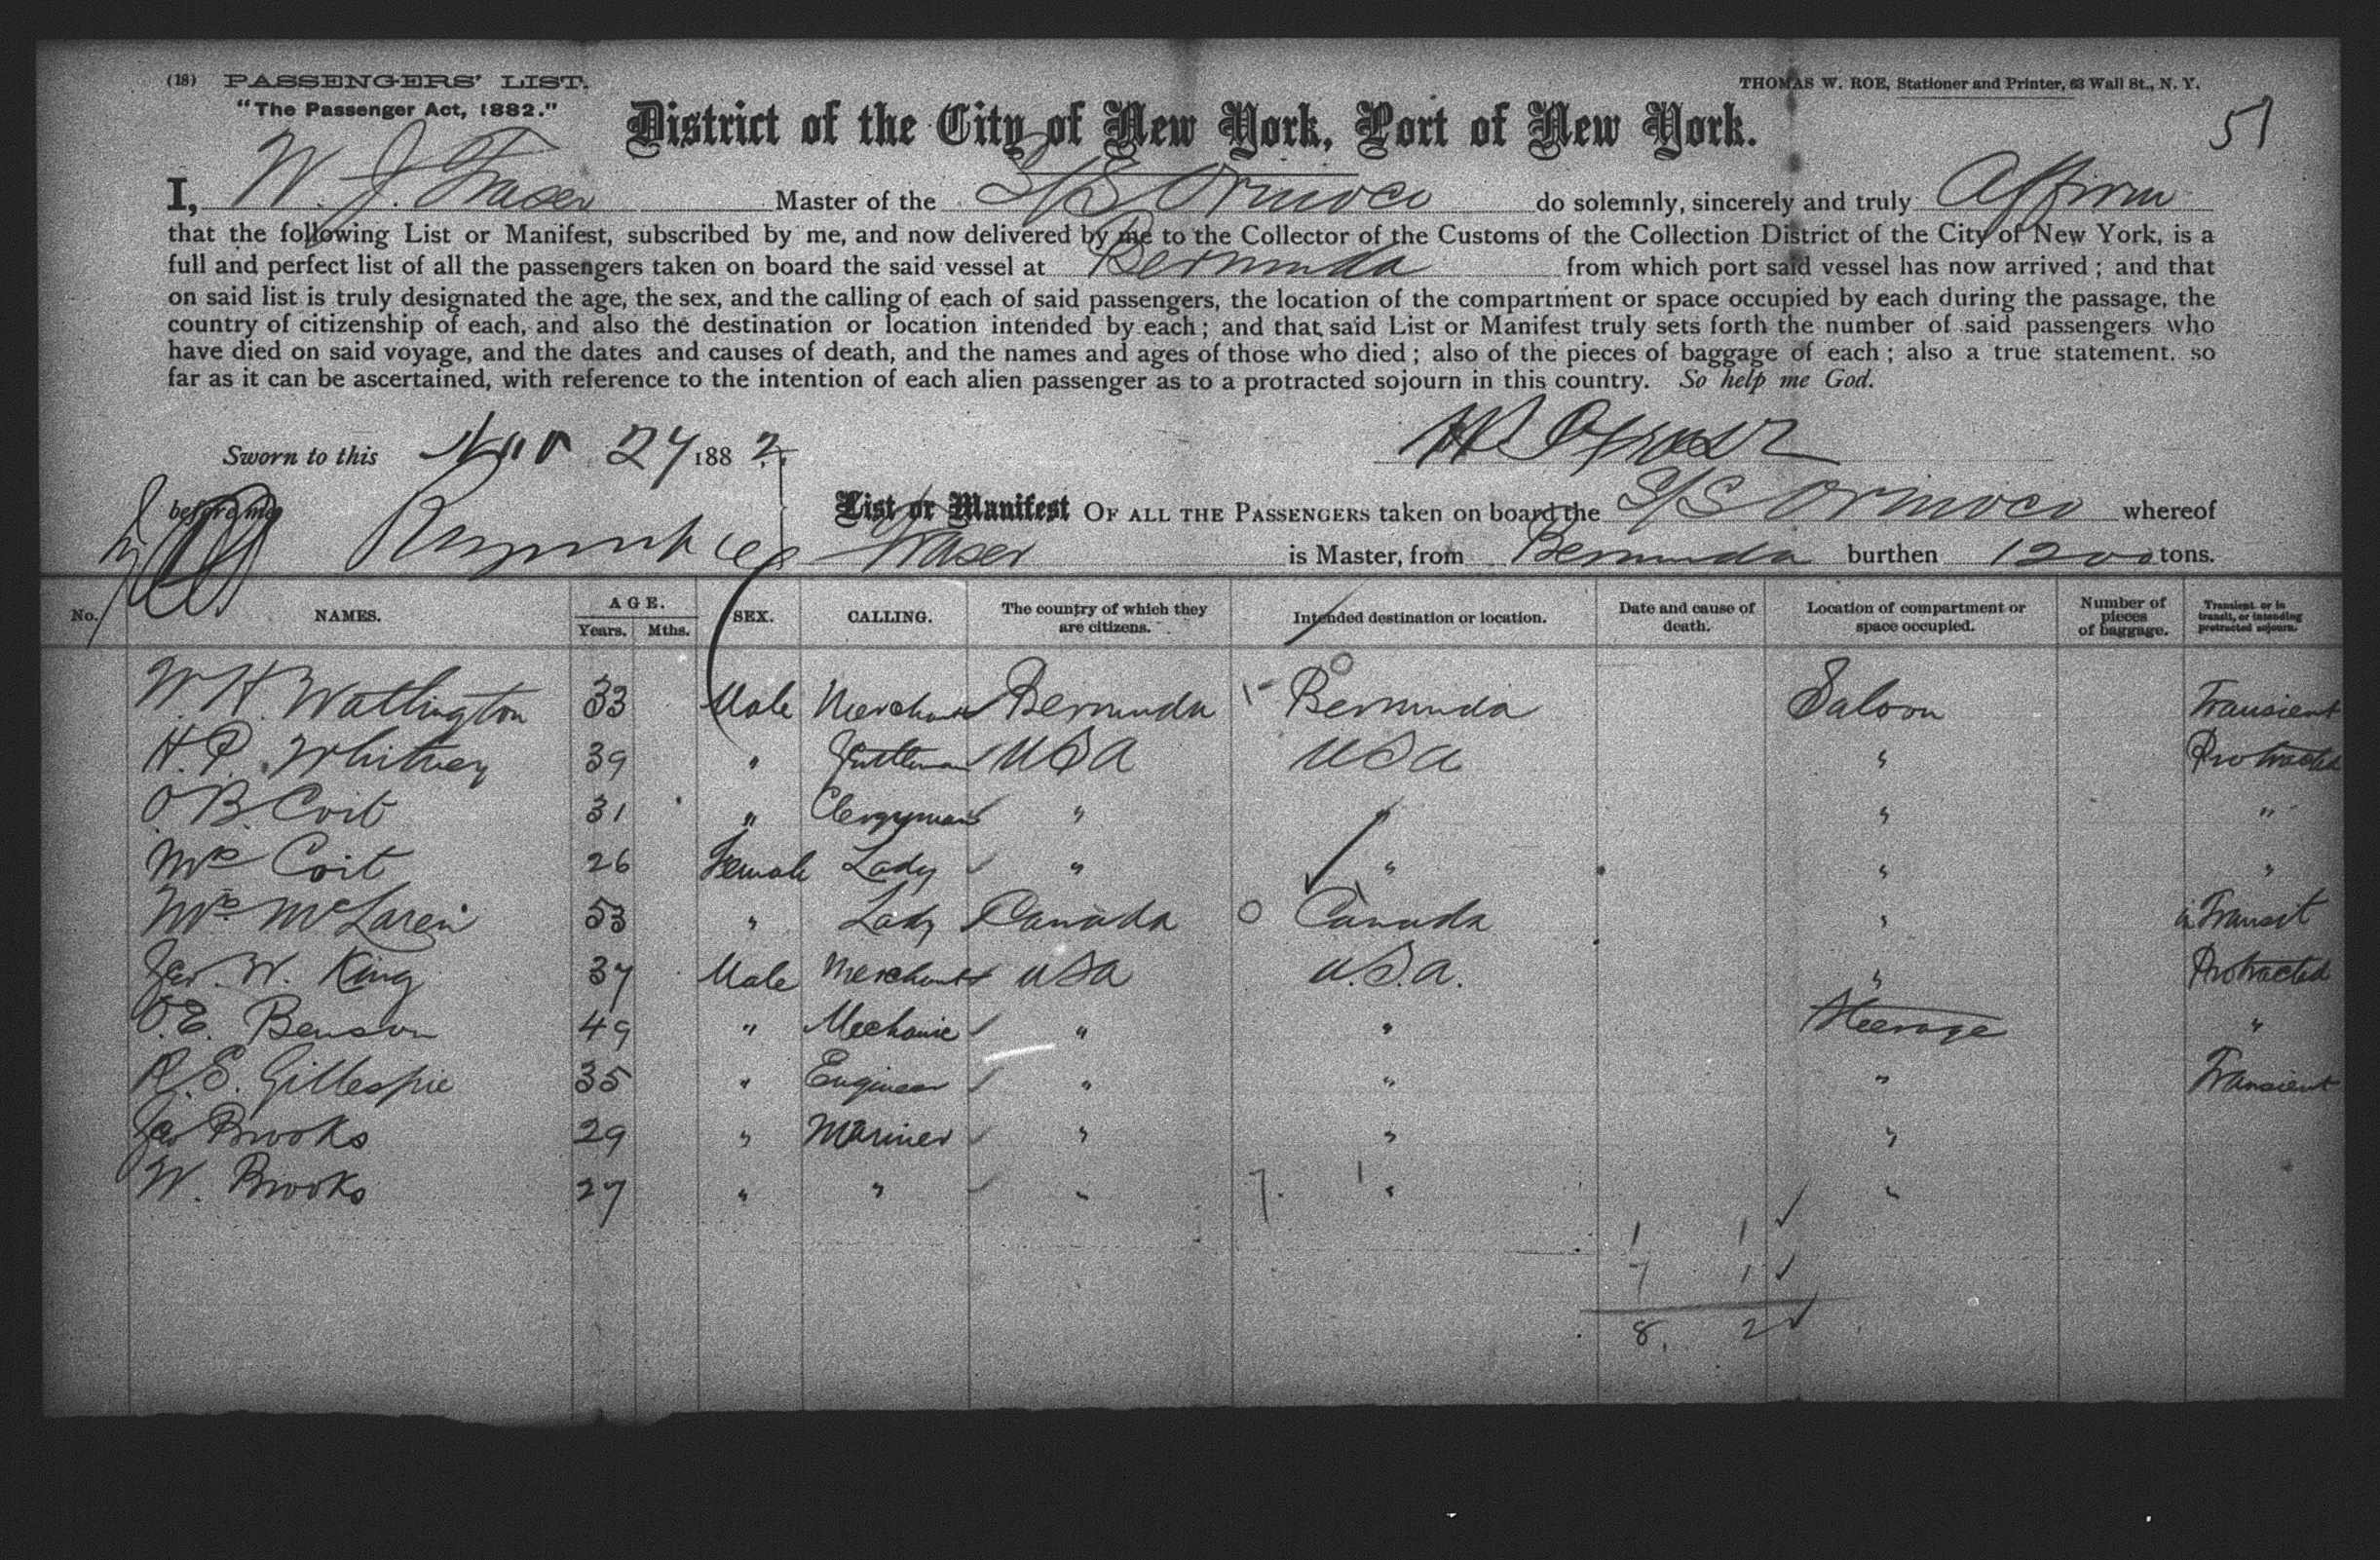 (18) PASSENGERS' LIST.
"The Passenger Act, 1882."
THOMAS W. ROE, Stationer and Printer, 63 Wall St., N. Y.
51
District of the City of New York, Port of New York.
I, W. J. Fraser Master of the S/S Orinoco do solemnly, sincerely and truly Affirm
that the following List or Manifest, subscribed by me, and now delivered by me to the Collector of the Customs of the Collection District of the City of New York, is a
full and perfect list of all the passengers taken on board the said vessel at Bermuda from which port said vessel has now arrived; and that
on said list is truly designated the age, the sex, and the calling of each of said passengers, the location of the compartment or space occupied by each during the passage, the
country of citizenship of each, and also the destination or location intended by each; and that said List or Manifest truly sets forth the number of said passengers who
have died on said voyage, and the dates and causes of death, and the names and ages of those who died; also of the pieces of baggage of each; also a true statement. so
far as it can be ascertained, with reference to the intention of each alien passenger as to a protracted sojourn in this country. So help me God.
Sworn to this Nov 27 1882.
before me
List or Manifest OF ALL THE PASSENGERS taken on board the S/S Orinoco whereof
Fraser is Master, from Bermuda burthen 1200 tons.
No. NAMES. AGE. Years. Mths. SEX. CALLING. The country of which they are citizens. Intended destination or location. Date and cause of death. Location of compartment or space occupied. Number of pieces of baggage. Transient or in transit, or intending protracted sojourn.
W. H. Watlington 33 Male Merchant Bermuda 1 Bermuda Saloon Transient
H. P. Whitney 39 " Gentleman USA USA " Protracted
O. B. Coit 31 " Clergyman " " " "
Mrs Coit 26 Female Lady " " " "
Mrs McLaren 53 " Lady Canada O Canada " in Transit
Jas. W. King 37 Male Merchant USA U.S.A. " Protracted
O. E. Benson 49 " Mechanic " " Steerage "
R. E. Gillespie 35 " Engineer " " " Transient
Jas Brooks 29 " Mariner " " "
W. Brooks 27 " " " 7. 1 " "
1 1
7 1
8. 2